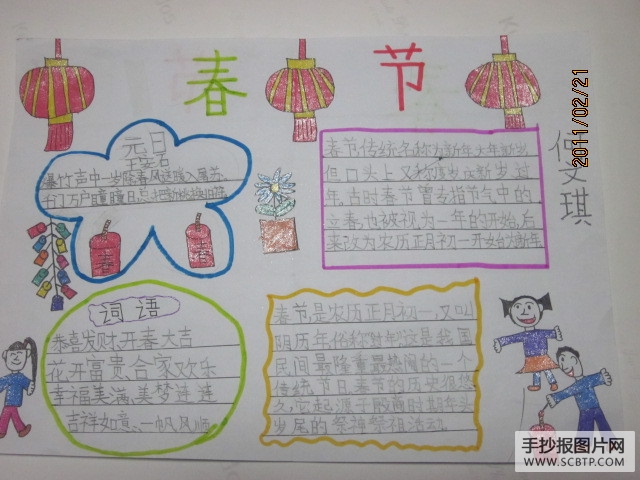 春节
2011/02/21
元日
王安石
爆竹声中一岁除春风送暖入屠苏、
千门万户瞳瞳日总把新桃换旧符
春
春
春节,传统名称为新年、大年、新岁,
但口头上又称度岁、庆新岁、过
年,古时春节曾专指节气中的
立春,也被视为一年的开始,后
来改为农历正月初一开始为新年
琪
词语
恭喜发财、开春大吉
花开富贵、合家欢乐
幸福美满、美梦连连
吉祥如意、一帆风顺
春节,是农历正月初一,又叫
阴历年,俗称"过年"这是我国
民间最隆重最热闹的一个
传统节日、春节的历史很悠
久,它起源于殷商时期年头
岁尾的祭神祭祖活动
手抄报图片网
WWW.SCBTP.COM